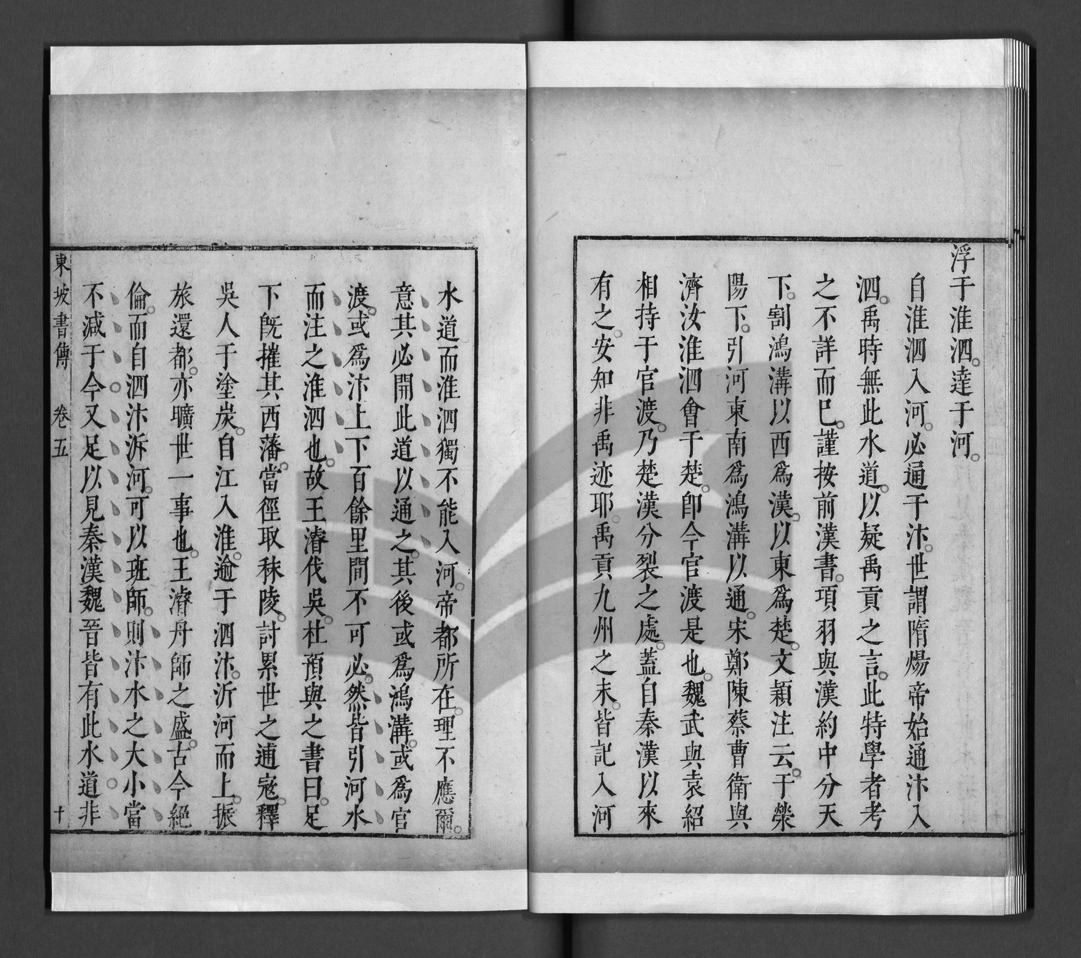 浮于淮泗。達于河。
自淮泗入河。必遍于汴。世謂隋煬帝始通汴入
泗。禹時無此水道。以疑禹貢之言。此特學者考
之不詳而已。謹按前漢書。項羽與漢約中分天
下。割鴻溝以西爲漢。以東爲楚。文穎注云。于滎
陽下。引河東南爲鴻溝以通。宋鄭陳蔡曹衛與
濟汝淮泗會于楚。卽今官渡是也。魏武與袁紹
相持于官渡。乃楚漢分裂之處。蓋自秦漢以來
有之。安知非禹迹耶。禹貢九州之末。皆記入河
水道而淮泗獨不能入河。帝都所在。理不應爾。
意其必開此道以通之。其後或爲鴻溝。或爲官
渡。或爲汴。上下百餘里間不可必。然皆引河水
而注之淮泗也。故王濬伐吳。杜預與之書曰。足
下旣摧其西藩。當徑取秣陵。討累世之逋寇。釋
吳人于塗炭。自江入淮。逾于泗汴。沂河而上。振
旅還都。亦曠世一事也。王濬舟師之盛。古今絕
倫。而自泗汴泝河。可以班師。則汴水之大小當
不減于今。又足以見秦漢魏晉皆有此水道。非
東坡書傳 卷五 十